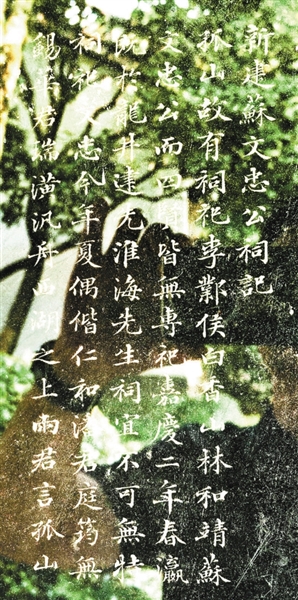 新建蘇文忠公祠記
孤山故有祠祀李鄴侯白香山林和靖蘇
文忠公而四頃皆無專祀嘉慶二年春瀛
既於龍井建先淮海先生祠宜不可無特
祠祀文忠今年夏偶偕仁和潘君庭筠無
錫華君瑞潢汎舟西湖之上兩君言孤山